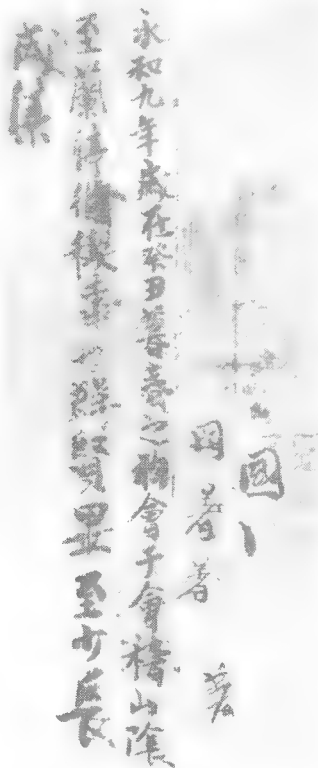 國
國著著著
永和九年歲在癸丑暮春之初會于會稽山陰
至蘭脩稧事也群賢畢至少長
咸集